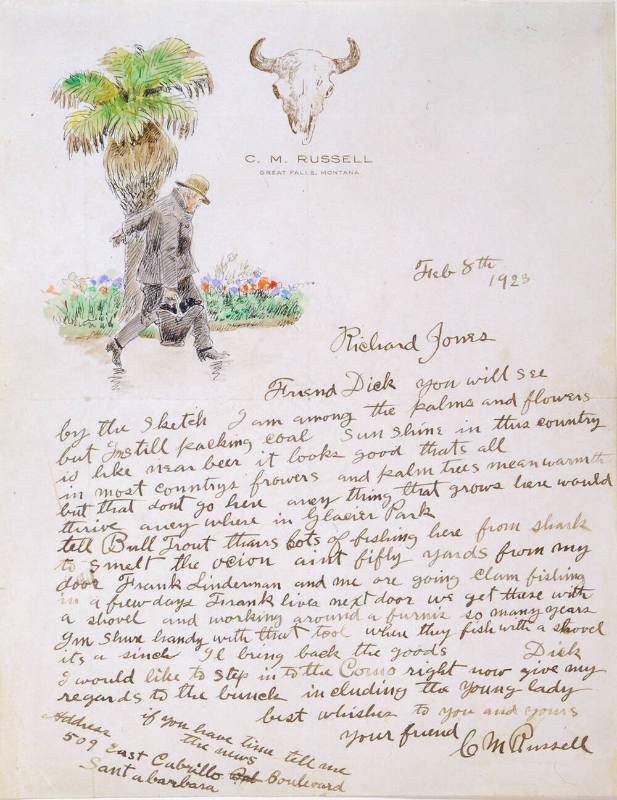 C. M. RUSSELL
GREAT FALLS, MONTANA
Feb 8th
1923
Richard Jones
Friend Dick you will see
by the sketch I am among the palms and flowers
but Im still packing coal Sun Shine in this country
is like near beer it looks good thats all
in most countrys frowers and palm trees mean warmth
but that dont go here aney thing that grows here would
thrive aney where in Glacier Park
tell Bull Trout thairs Lots of fishing here from shark
to smelt the ocion aint fifty yards from my
door Frank Linderman and me are going clam fishing
in a few days Frank lives next door we get these with
a shovel and working around a furnis so many years
Im shure handy with that tool when they fish with a shovel
its a sinch Il bring back the goods Dick
I would like to step in to the Como right now give my
regards to the bunch including the young lady
best whishes to you and yours
your friend
C M Russell
if you have time tell me
the news
Address
509 East Cabrillo Boulevard
Santa barbara